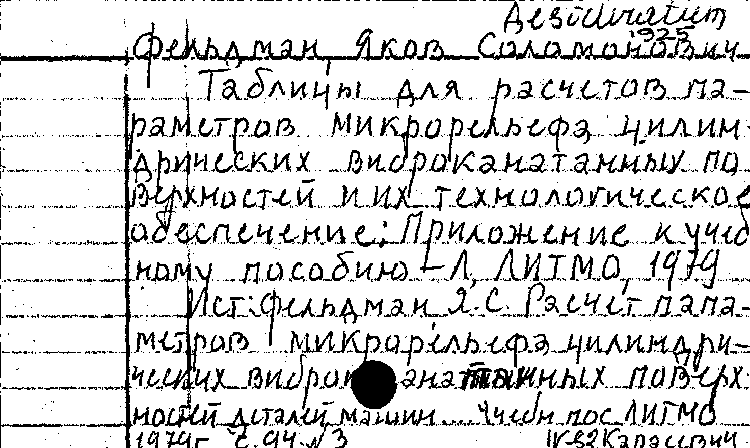 Desideratum
Фельдман, Яков Соломонович
1925
Таблицы для расчетов па-
раметров микрорельефа цилин-
дрических виброканатанных по
верхностей и их технологическое
обеспечение: Приложение к учеб
ному пособию - Л, ЛИТМО, 1979
Ист: Фельдман Я.С. Расчет папа-
метров микрорельефа цилиндри-
ческих виброк анатанных поверх-
ностей деталей машин... Учебн пос ЛИТМО
1979г с. 94 N 3 IV-82 Карасевич